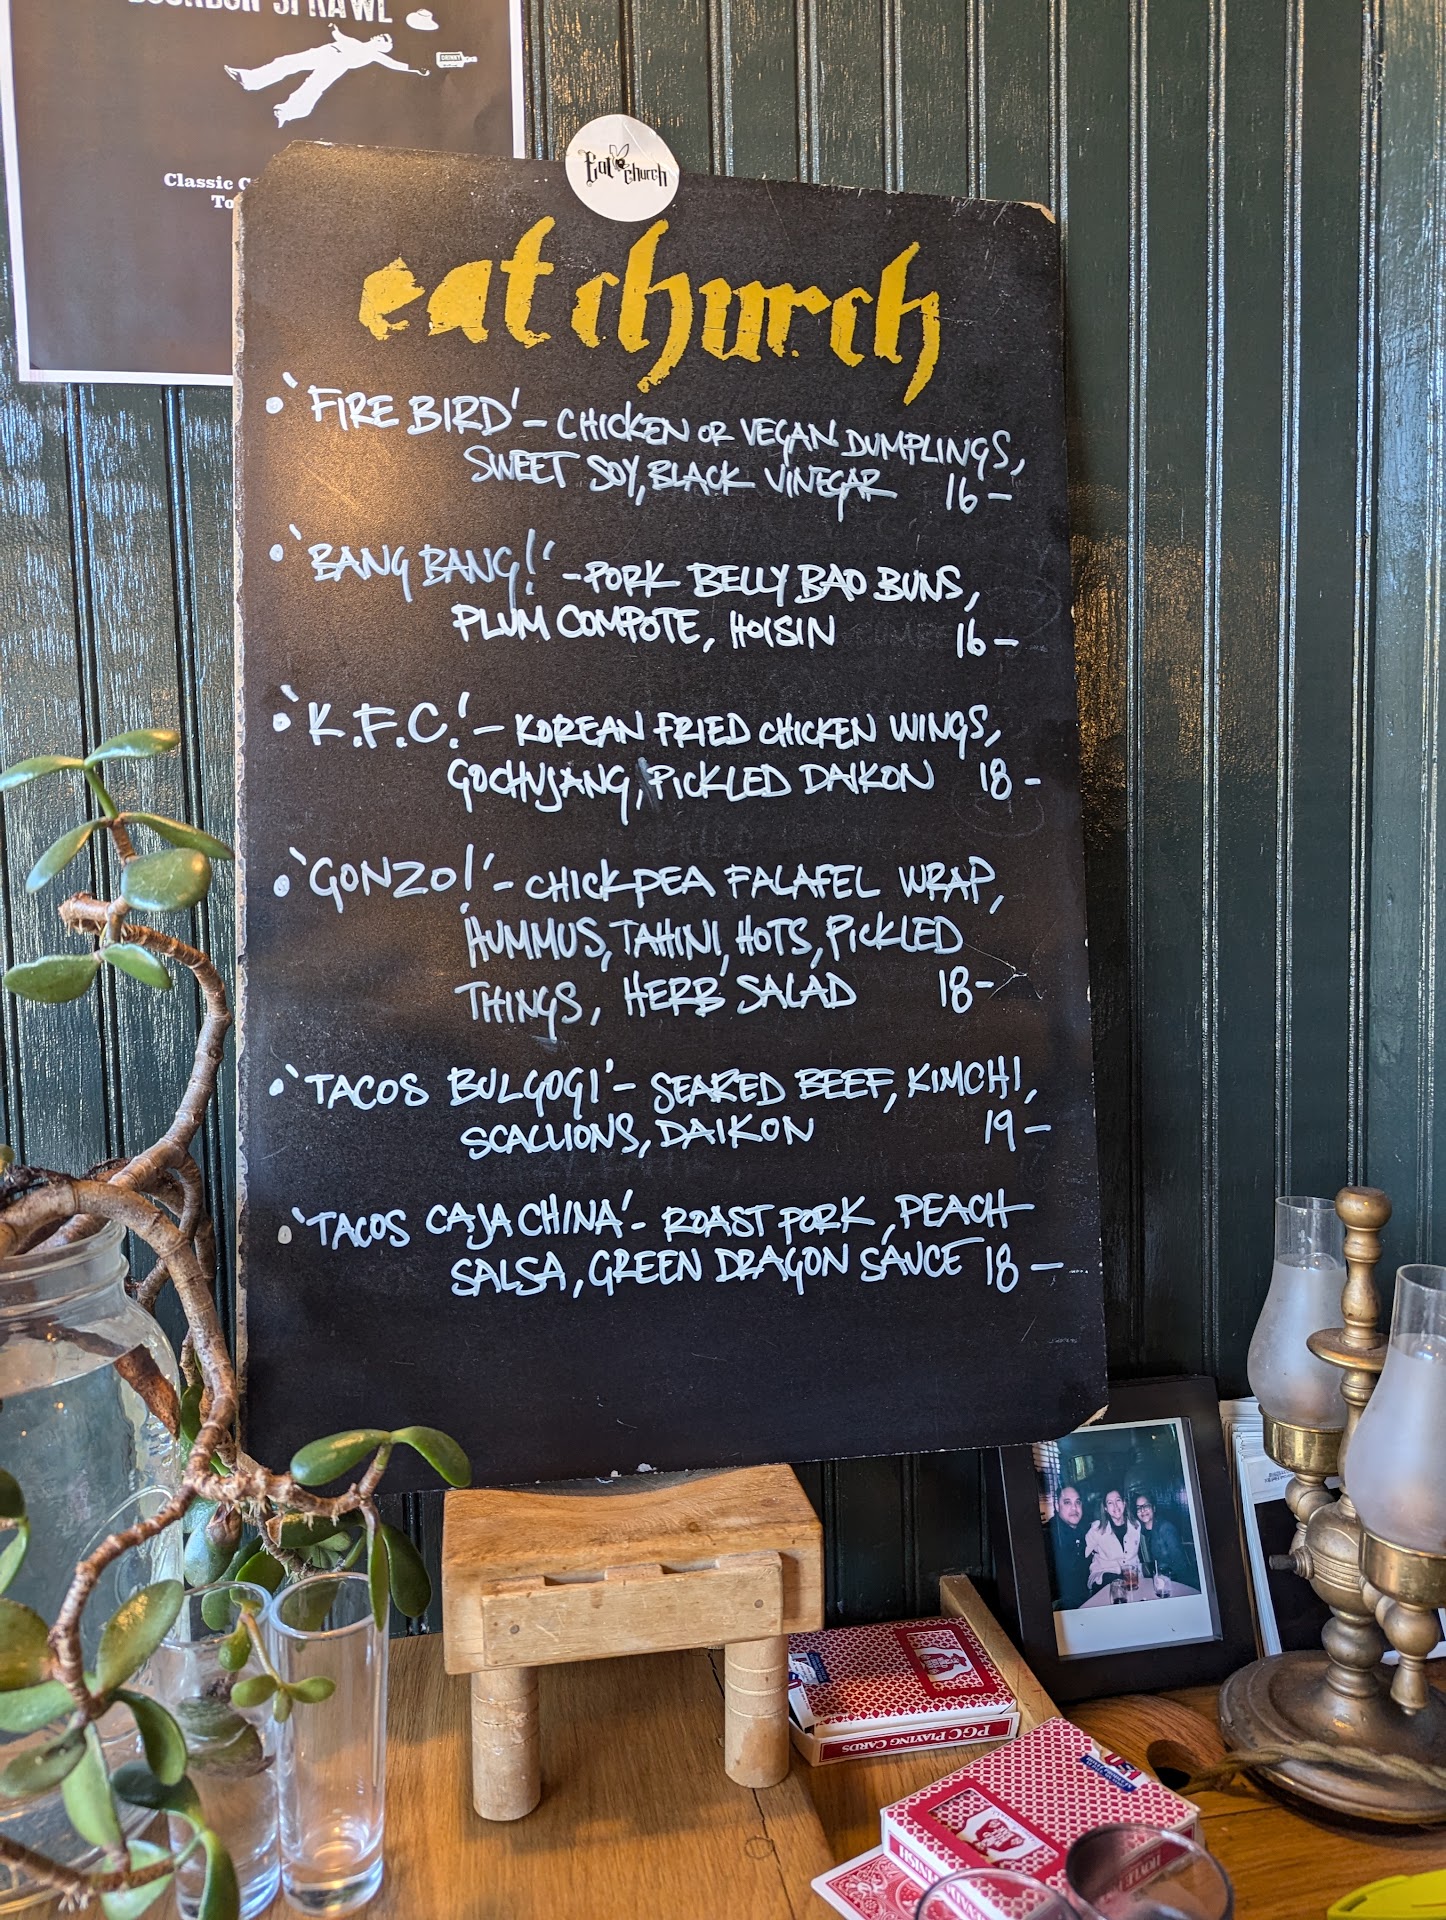 BOURBON SPRAWL
Classic
To
Eat church
eat church
• 'FIRE BIRD' - CHICKEN OR VEGAN DUMPLINGS,
SWEET SOY, BLACK VINEGAR 16 -
• 'BANG BANG!' - PORK BELLY BAO BUNS,
PLUM COMPOTE, HOISIN 16 -
• 'K.F.C.!' - KOREAN FRIED CHICKEN WINGS,
GOCHUJANG, PICKLED DAIKON 18 -
• 'GONZO!' - CHICKPEA FALAFEL WRAP,
HUMMUS, TAHINI, HOTS, PICKLED
THINGS, HERB SALAD 18 -
• 'TACOS BULGOGI' - SEARED BEEF, KIMCHI,
SCALLIONS, DAIKON 19 -
• 'TACOS CAJA CHINA' - ROAST PORK, PEACH
SALSA, GREEN DRAGON SAUCE 18 -
PGC PLAYING CARDS